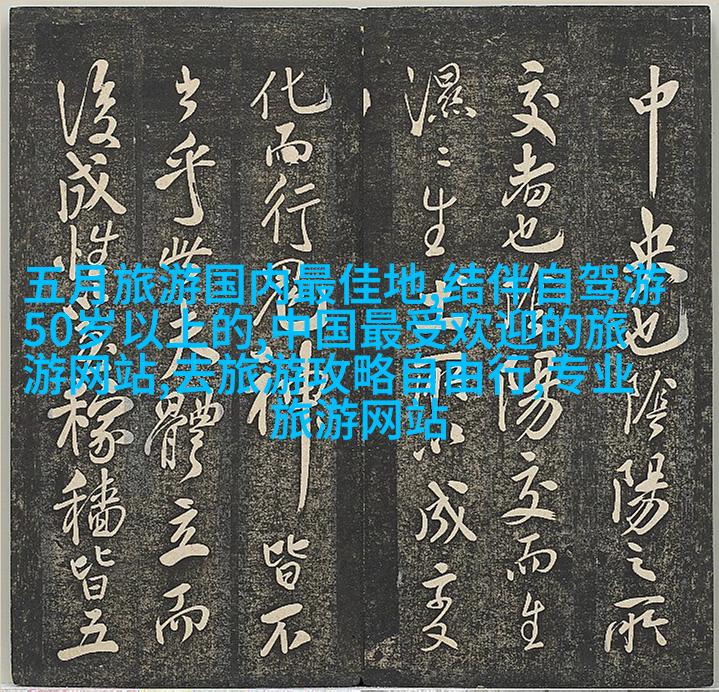 五月旅游国内最佳地,结伴自驾游
50岁以上的,中国最受欢迎的旅
游网站,去旅游攻略自由行,专业
旅游网站
中央也陰陽之所
交者也陰陽交而生
濕〻生所以成变
化而行鬼神皆不
乎夫體立而
後成性稼穡皆五